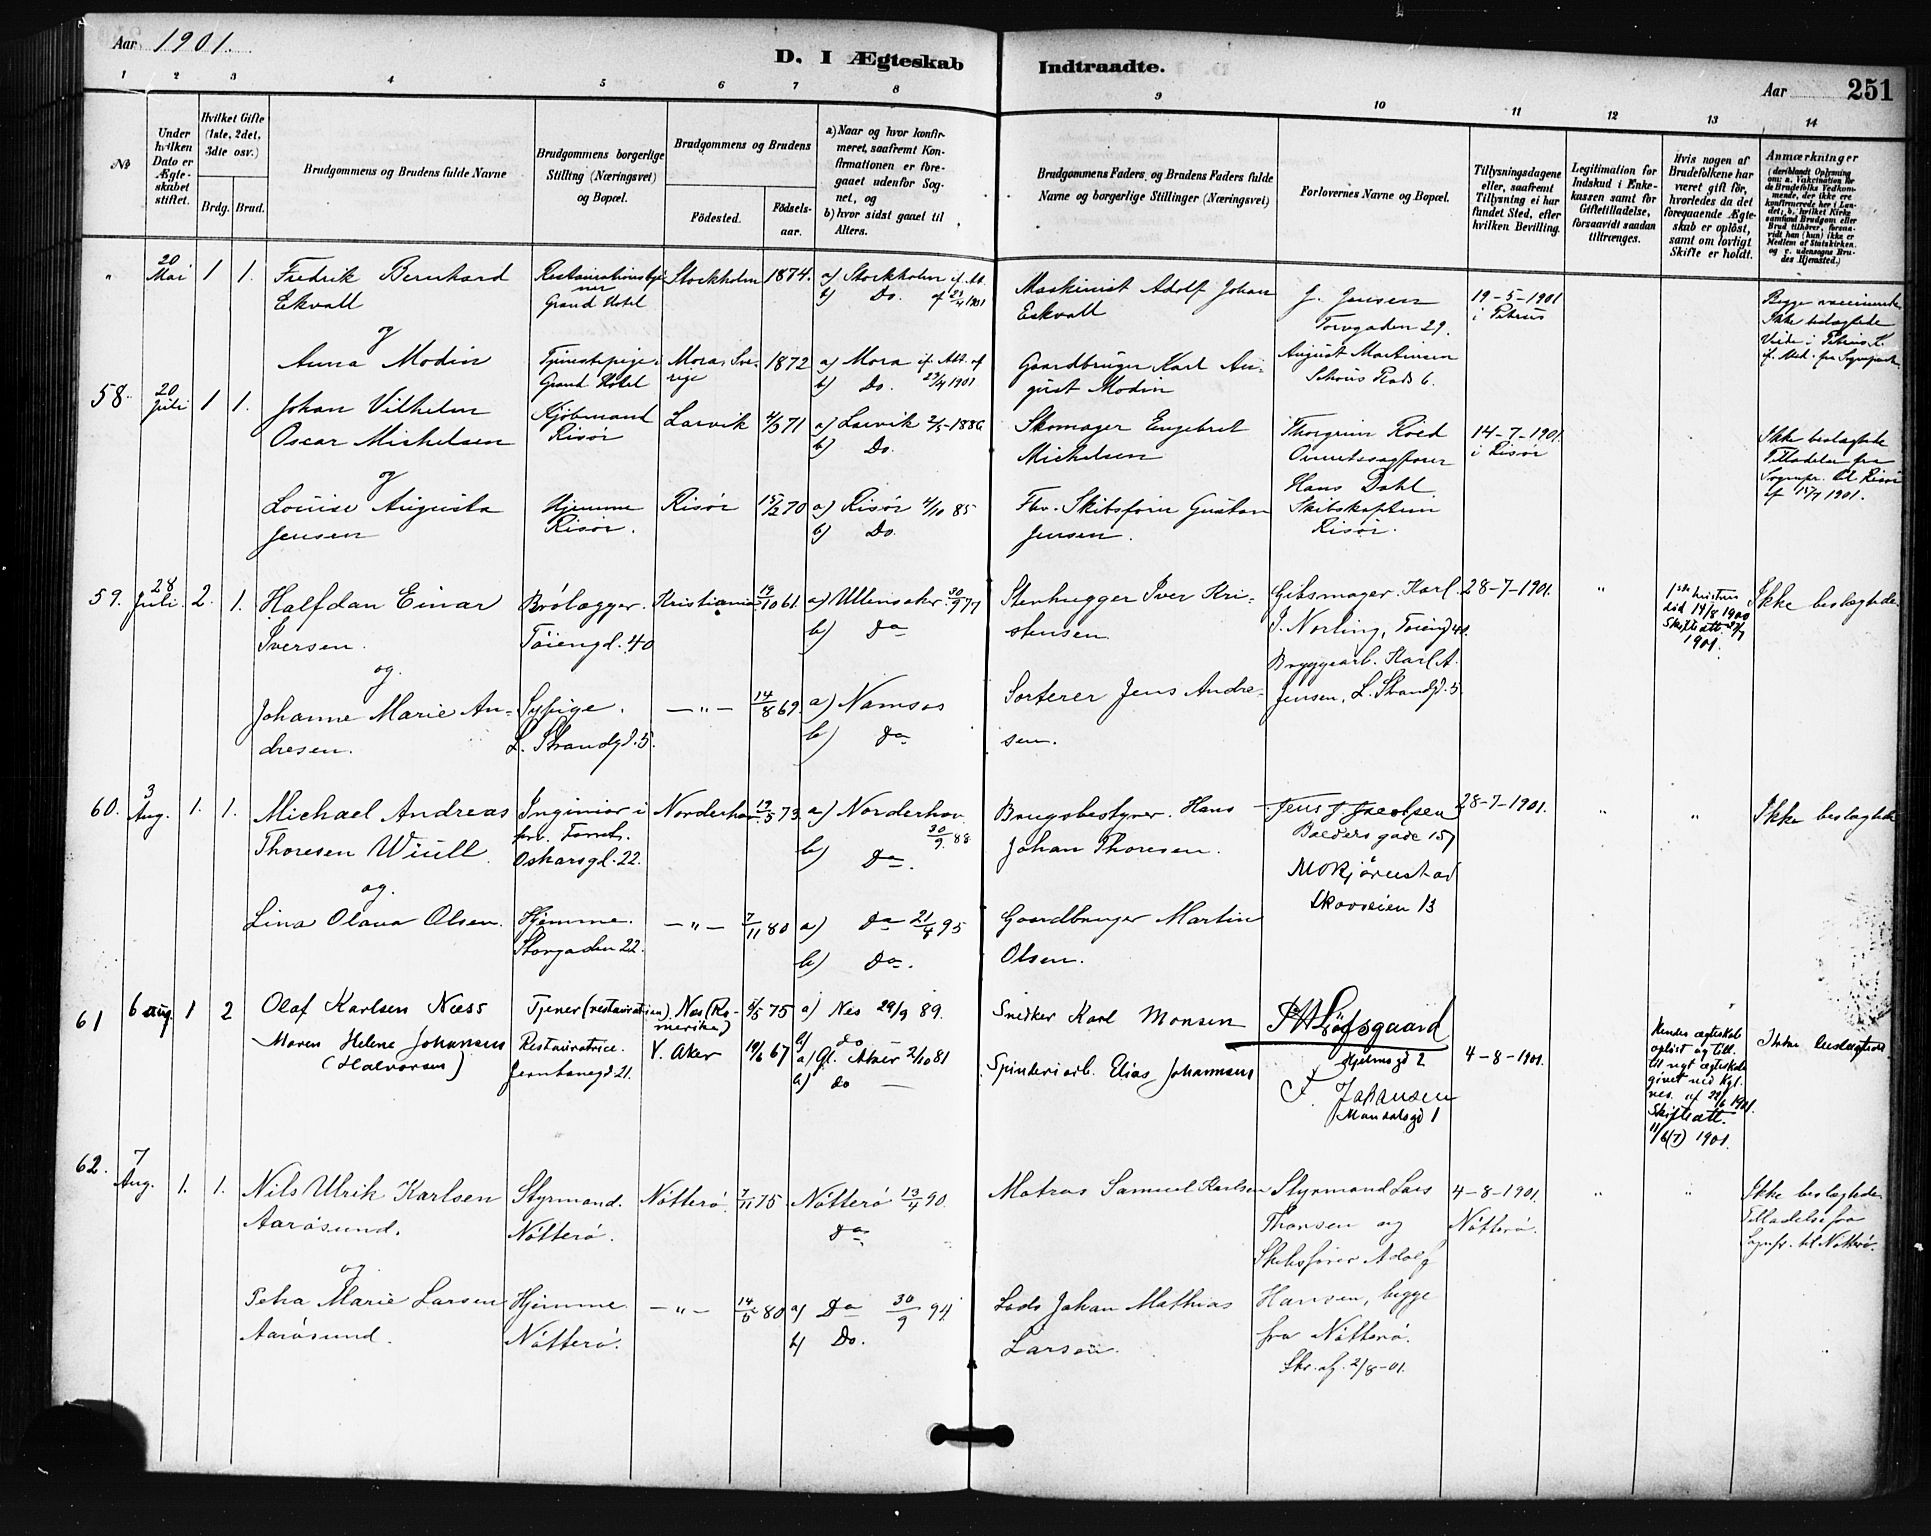 Aar 1901.
D. I Ægteskab Indtraadte.
Aar 251
1 2 3 4 5 6 7 8 9 10 11 12 13 14
No
Under hvilken Dato er Ægteskabet stiftet.
Hvilket Gifte (1ste, 2det, 3die osv.)
Brdg. Brud.
Brudgommens og Brudens fulde Navne
Brudgommens borgerlige Stilling (Næringsvei) og Bopæl.
Brudgommens og Brudens
Fødested. Fødselsaar.
a) Naar og hvor konfirmeret, saafremt Konfirmationen er foregaaet udenfor Sognet, og
b) hvor sidst gaaet til Alters.
Brudgommens Faders og Brudens Faders fulde Navne og borgerlige Stillinger (Næringsvei)
Forlovernes Navne og Bopæl.
Tillysningsdagene eller, saafremt Tillysning ei har fundet Sted, efter hvilken Bevilling.
Legitimation for Indskud i Enkekassen samt for Giftetilladelse, forsaavidt saadan tiltrænges.
Hvis nogen af Brudefolkene har været gift før, hvorledes da det foregaaende Ægteskab er opløst, samt om lovligt Skifte er holdt.
Anmærkninger
(deriblandt Oplysning om: a. Vaccination for de Brudefolks Vedkommende, der ikke ere konfirmerede her i Landet; b. hvilket Kirkesamfund Brudgom eller Brud tilhører, forsaavidt han (hun) ikke er Medlem af Statskirken, og c. udensogns Brudes Hjemsted.)
" 20 Mai 1 1. Fredrik Bernhard Stockholm 1874. a) Stockholm if. Att.
Ekvall Grand Hotel b) Do. af 23/4 1901
Maskinist Adolf Johan Eckvall
J. Jensen
Torvgaden 29.
19-5-1901
i Petrus
Begge vaccinerede
Ikke beslægtede
og
Anna Modin Tjenestepige Grand Hotel Mora, Sverige 1872 a) Mora if. Att. af
b) Do. 23/4 1901
Gaardbruger Karl August Modin
August Martinsen
Schous Plads 6.
58. 20 Juli 1 1. Johan Vilhelm Kjøbmand Larvik 4/3 71 a) Larvik 2/5-1886
Oscar Michelsen Risør b) Do.
Skomager Engebret
Michelsen
Thorgrim Röed
14-7-1901.
i Risør
Ikke beslægtede
Tilladelse fra
Sognepr. til Risør
af 15/7 1901.
og
Louise Augusta Hjemme Risør 15/2 70 a) Risør 4/10 85
Jensen Risør. b) Do.
Fhv. Skibsfører Gustav
Jensen.
Hans Dahl
Skibskaptein
Risør.
59. 28 Juli. 2. 1. Halfdan Einar Brolægger. Kristiania 19/10 61. a) Ullensaker 30/9 77
Iversen. Töiengd. 40 b) Do
Stenhugger Iver Kristensen
Gibsmager Karl
J. Norling, Töiengd 40.
28-7-1901. "
1ste hustru
död 14/8 1900
Skifteatt.
1901.
Ikke beslægtede.
og.
Johanne Marie Andresen. Sypige. —"— 14/8 69. a) Namsos
L. Strandgd. 5. b) Do
Sorterer Jens Andresen.
Bryggearb. Karl A.
Jensen, L. Strandgd. 5
60. 3 Aug. 1. 1. Michael Andreas Inginiør i Norderhov 19/5 73. a) Norderhov
Thoresen Wiull. 30/9. 88
Oskarsgd. 22. b) Do.
Brugsbestyrer. Hans
Johan Thoresen.
Jens J. Jacobsen
Baldersgade 15
M Kjørnstad
Skovveien 13
28-7-1901. " " Ikke beslægtede
og.
Lina Olava Olsen. Hjemme. —"— 7/11 80 a) Do 21/4 95
Storgaden 22. b) Do.
Gaardbruger Martin
Olsen.
61 6 aug. 1 2 Olaf Karlsen Næss Tjener (restauration). Nes (Romerike) 5/5 75 a) Nes 29/9 89.
b) do
Snedker Karl Monsen
Hjelmsgd 2
Maren Helene Johansen Restauratrice. V. Aker 19/6 67 a) Gl. Aker 2/10 81
(Halvorsen) Jernbanegd 21. b) do —
Spinderiarb. Elias Johannesen
F. Johansen
Mandalsgd 1
4-8-1901.
Hendes ægteskab
opløst og till.
til nyt ægteskab
givet ved Kgl.
res. af 22/6 1901.
Skifteatt.
11/6(7) 1901.
Ikke beslægtede
62. 7 Aug. 1. 1. Nils Ulrik Karlsen Styrmand. Nötterö. 7/11 75. Nötterö 13/4 90.
Aarösund. Nötterö. Do
Matros Samuel Karlsen
Styrmand Lars
Thorsen og
Skibsfører Adolf
4-8-1901.
Nötterö.
" "
Ikke beslægtede
Tilladelse fra
Sognepr. til Nötterö.
og.
Petra Marie Larsen Hjemme —"— 14/5 80 a) Do 30/9 94
Aarösund. Nötterö. b) Do.
Lods Johan Mathias
Larsen.
Hansen, begge
fra Nötterö.
Skr. af. 2/8-01.